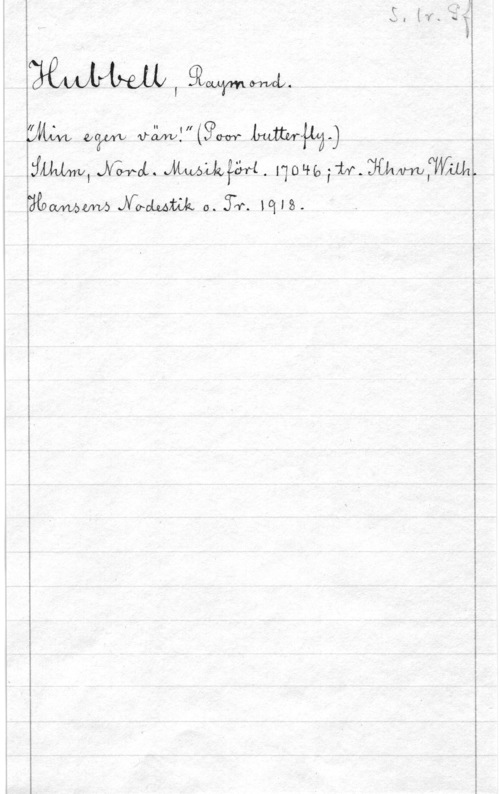 S. 1r. Pf
Hubbell, Raymond.
"Min egen vän!" (Poor butterfly.)
Sthlm, Nord. Musikförl. 17046; tr. Khvn, Wilh.
Hansens Nodestik o. Tr. 1918.